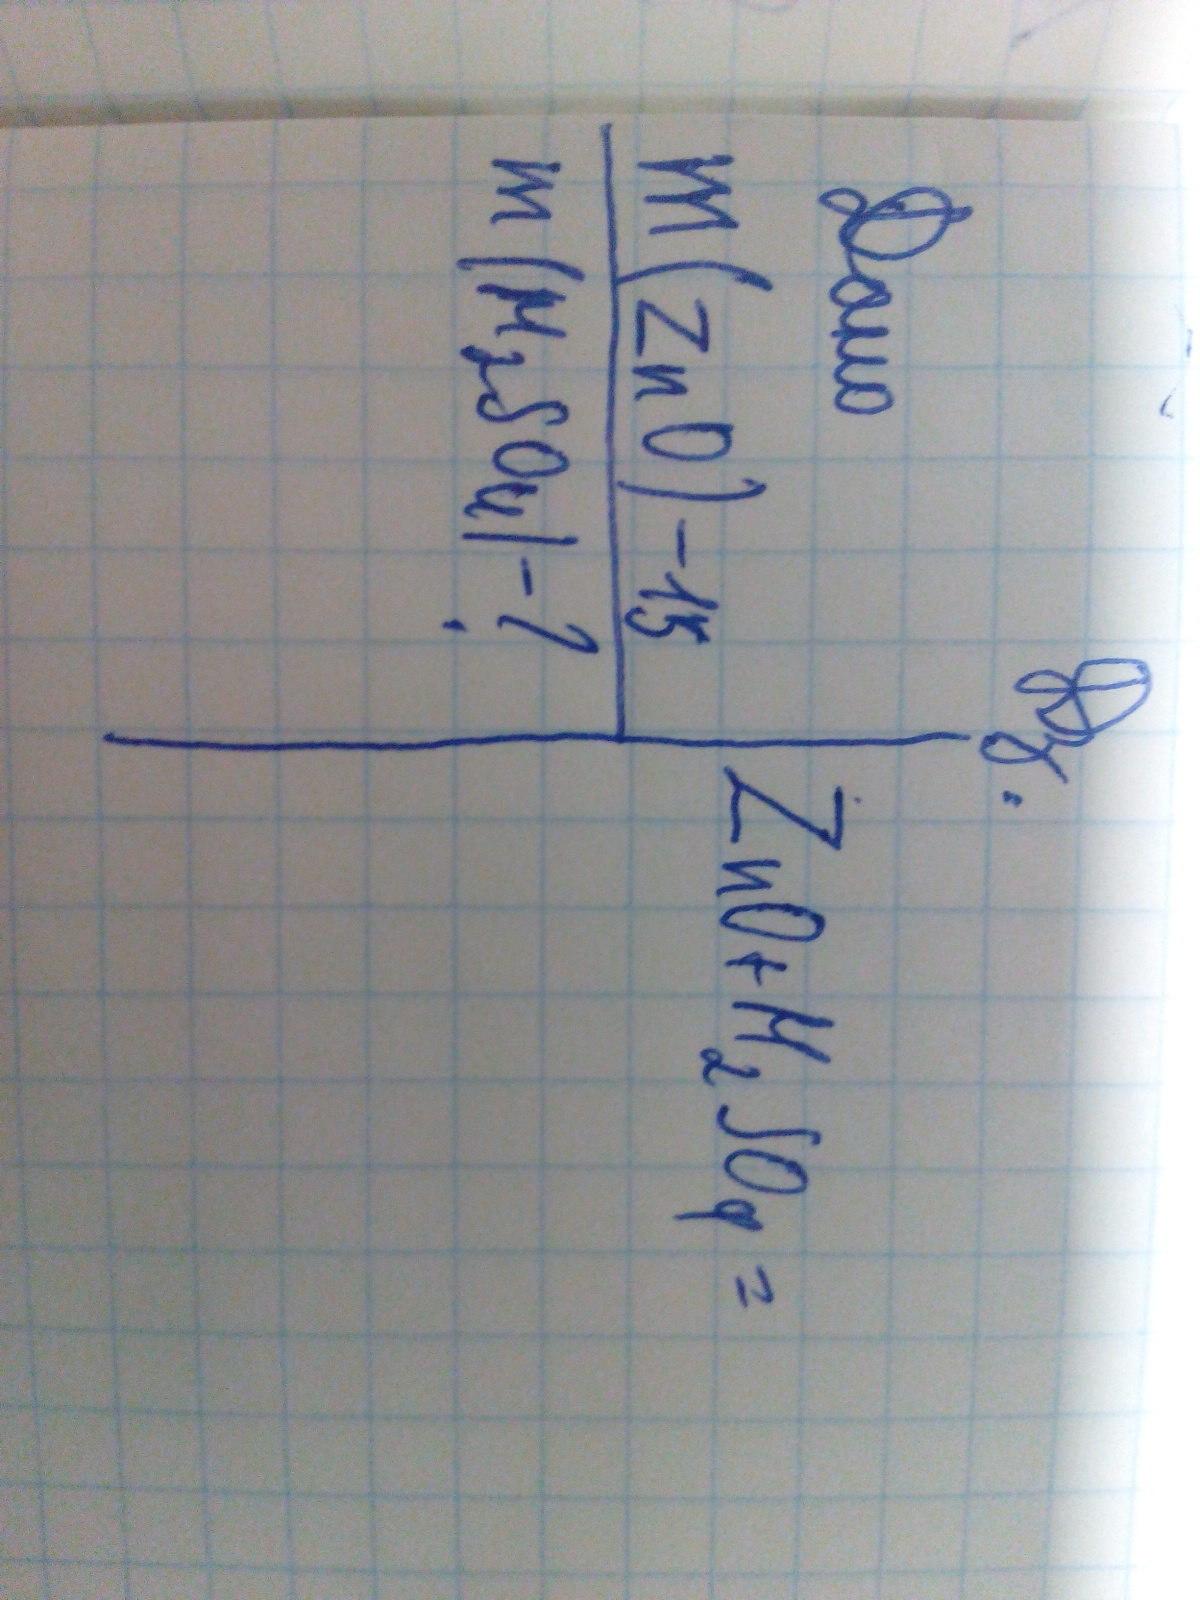 Дз.
Дано
m(ZnO)-15
m(H₂SO₄)-?
ZnO+H₂SO₄=